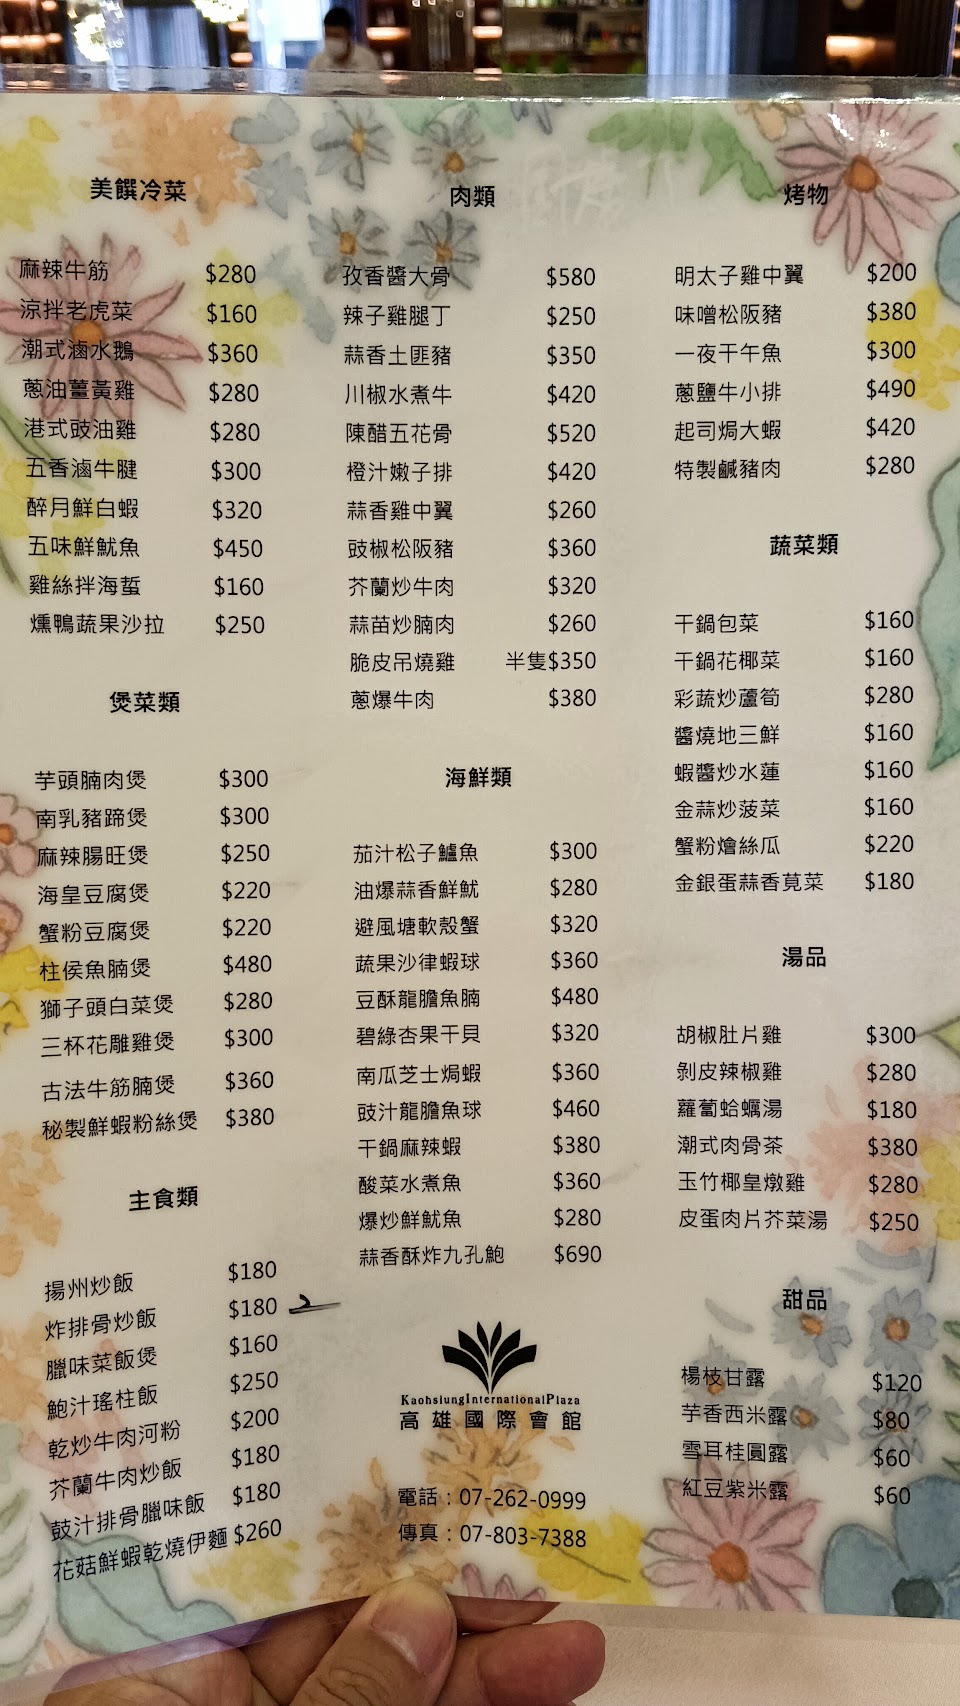 美饌冷菜
麻辣牛筋 $280
涼拌老虎菜 $160
潮式滷水鵝 $360
蔥油薑黃雞 $280
港式豉油雞 $280
五香滷牛腱 $300
醉月鮮白蝦 $320
五味鮮魷魚 $450
雞絲拌海蜇 $160
燻鴨蔬果沙拉 $250
煲菜類
芋頭腩肉煲 $300
南乳豬蹄煲 $300
麻辣腸旺煲 $250
海皇豆腐煲 $220
蟹粉豆腐煲 $220
柱侯魚腩煲 $480
獅子頭白菜煲 $280
三杯花雕雞煲 $300
古法牛筋腩煲 $360
秘製鮮蝦粉絲煲 $380
主食類
揚州炒飯 $180
炸排骨炒飯 $180
臘味菜飯煲 $160
鮑汁瑤柱飯 $250
乾炒牛肉河粉 $200
芥蘭牛肉炒飯 $180
鼓汁排骨臘味飯 $180
花菇鮮蝦乾燒伊麵 $260
肉類
孜香醬大骨 $580
辣子雞腿丁 $250
蒜香土匪豬 $350
川椒水煮牛 $420
陳醋五花骨 $520
橙汁嫩子排 $420
蒜香雞中翼 $260
豉椒松阪豬 $360
芥蘭炒牛肉 $320
蒜苗炒腩肉 $260
脆皮吊燒雞 半隻$350
蔥爆牛肉 $380
海鮮類
茄汁松子鱸魚 $300
油爆蒜香鮮魷 $280
避風塘軟殼蟹 $320
蔬果沙律蝦球 $360
豆酥龍膽魚腩 $480
碧綠杏果干貝 $320
南瓜芝士焗蝦 $360
豉汁龍膽魚球 $460
干鍋麻辣蝦 $380
酸菜水煮魚 $360
爆炒鮮魷魚 $280
蒜香酥炸九孔鮑 $690
KaohsiungInternationalPlaza
高雄國際會館
電話：07-262-0999
傳真：07-803-7388
烤物
明太子雞中翼 $200
味噌松阪豬 $380
一夜干午魚 $300
蔥鹽牛小排 $490
起司焗大蝦 $420
特製鹹豬肉 $280
蔬菜類
干鍋包菜 $160
干鍋花椰菜 $160
彩蔬炒蘆筍 $280
醬燒地三鮮 $160
蝦醬炒水蓮 $160
金蒜炒菠菜 $160
蟹粉燴絲瓜 $220
金銀蛋蒜香莧菜 $180
湯品
胡椒肚片雞 $300
剝皮辣椒雞 $280
蘿蔔蛤蠣湯 $180
潮式肉骨茶 $380
玉竹椰皇燉雞 $280
皮蛋肉片芥菜湯 $250
甜品
楊枝甘露 $120
芋香西米露 $80
雪耳桂圓露 $60
紅豆紫米露 $60